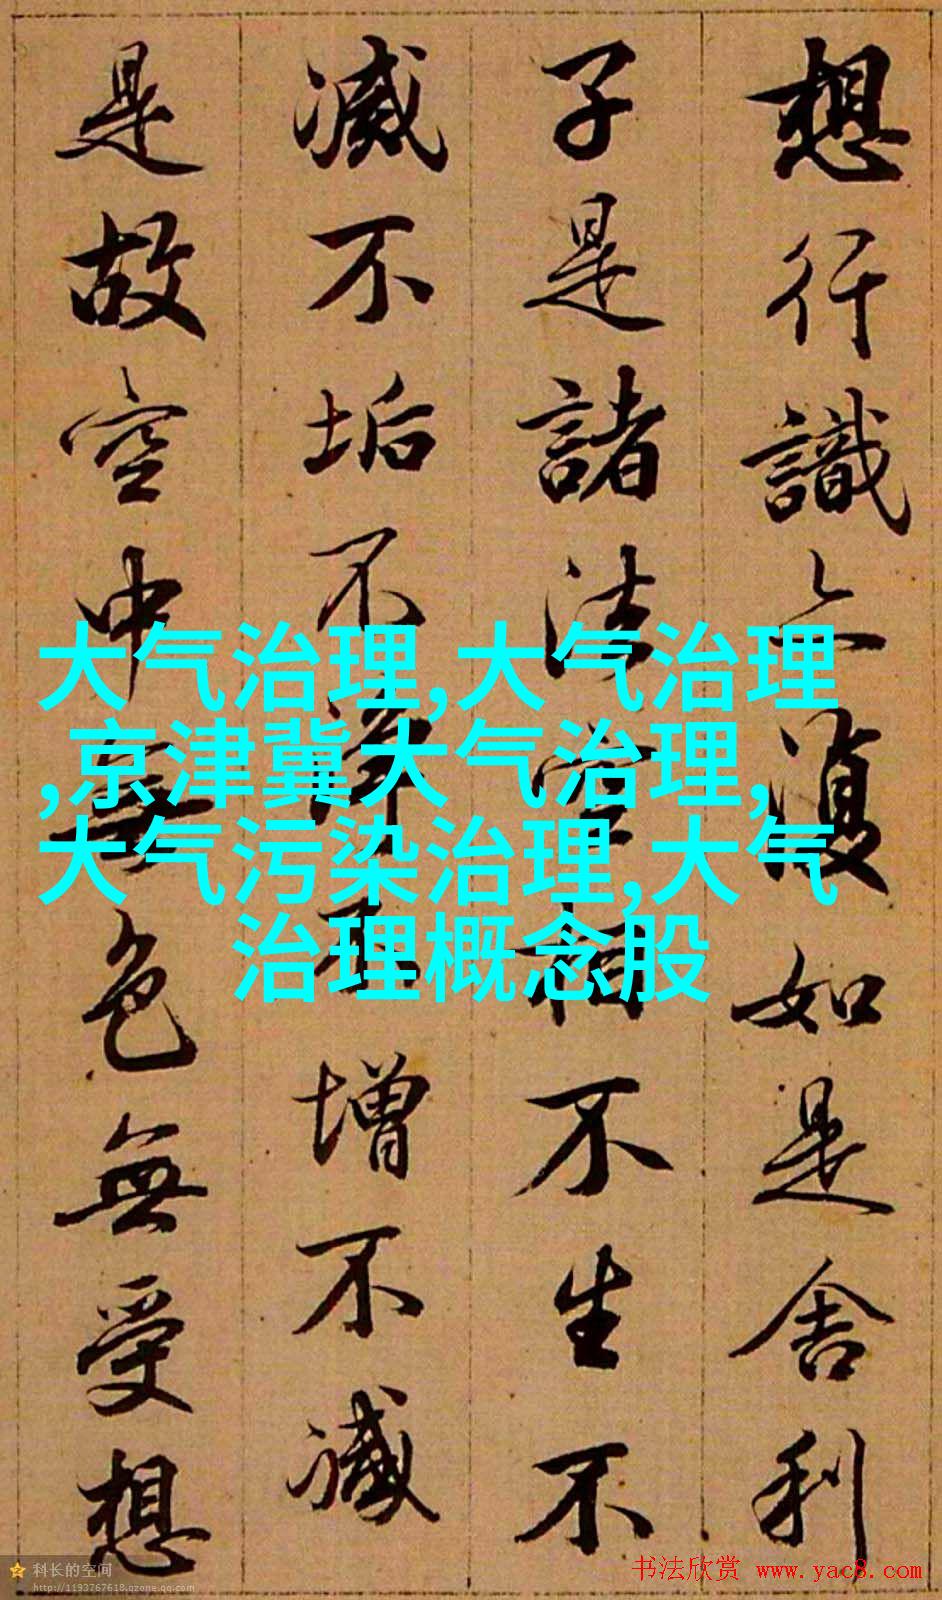 想行識亦復如是舍利
子是諸法空相不生不
滅不垢不淨不增不減
是故空中無色無受想
大气治理,大气治理
,京津冀大气治理,
大气污染治理,大气
治理概念股
科长的空间
http://1193767618.qzone.qq.com
书法欣赏 www.yac8.com